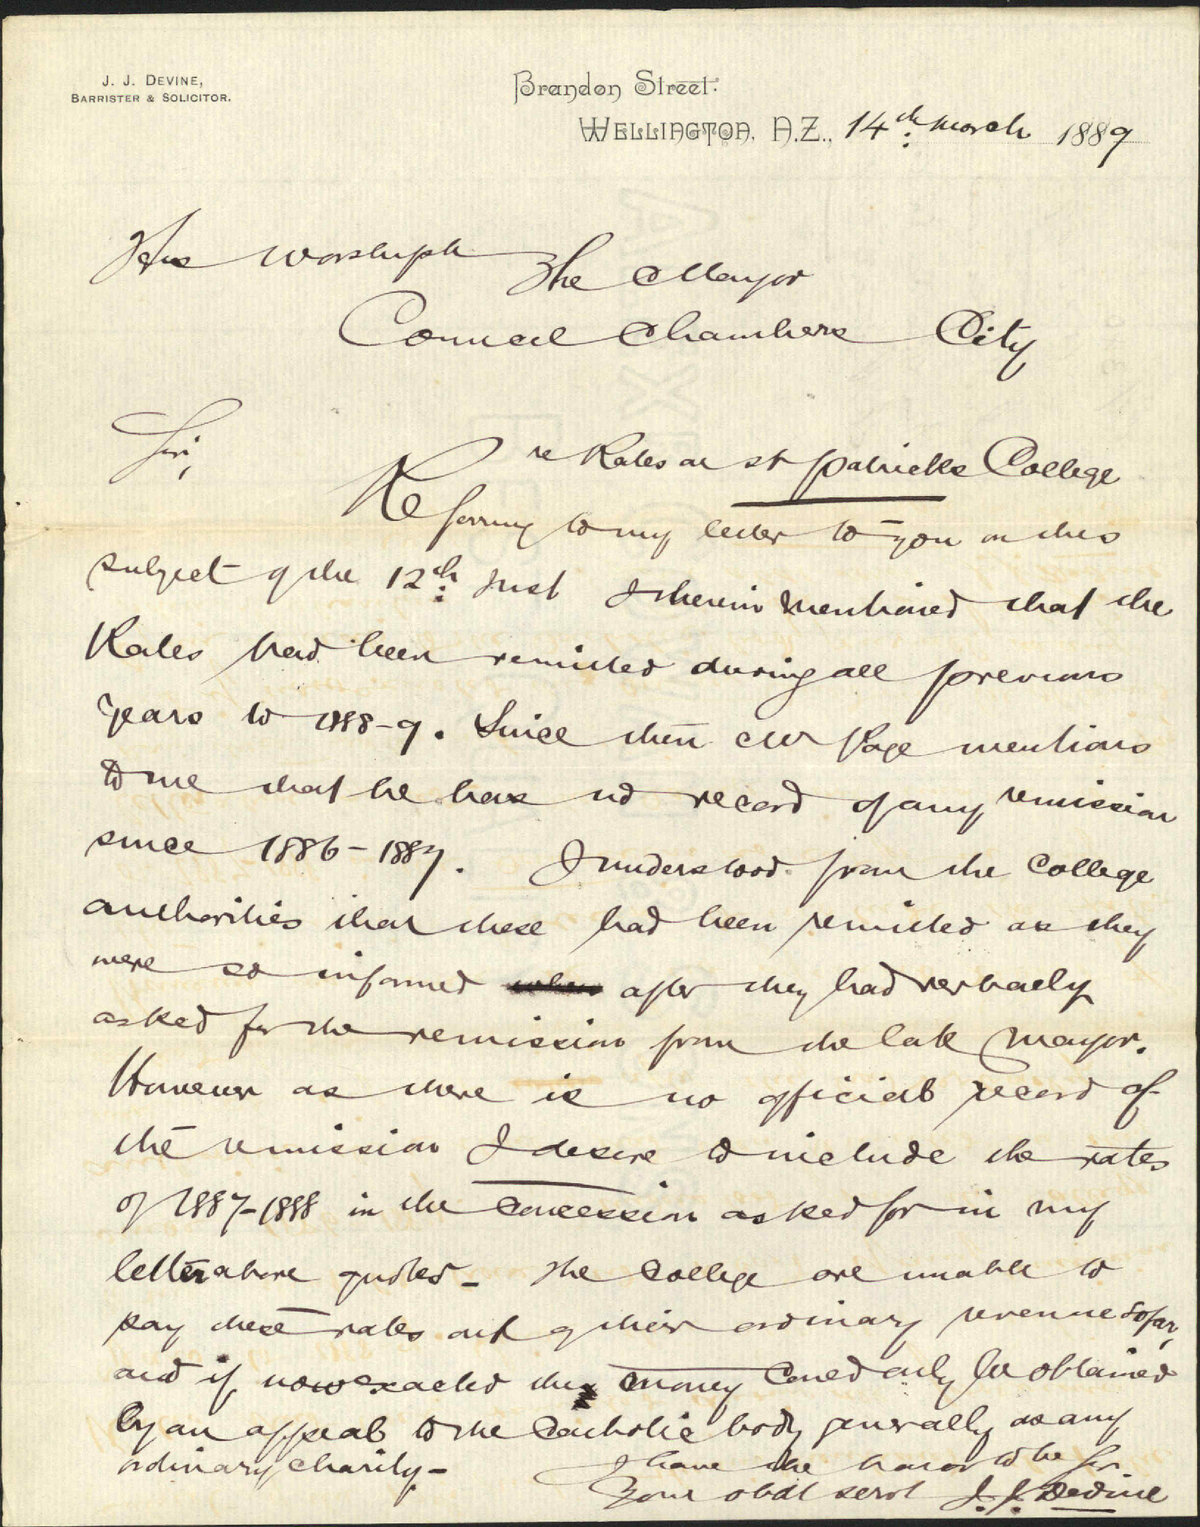 J. J. DEVINE,
BARRISTER & SOLICITOR.
Brandon Street.
WELLINGTON, N.Z., 14th March 1889
His Worship
The Mayor
Council Chambers City
Sir,
re Rates on St Patricks College
Referring to my letter to you on this
subject of the 12th inst I therein mentioned that the
Rates had been remitted during all previous
years to 1888-9. Since then Mr Page mentions
to me that he has no record of any remission
since 1886-1887. I understood from the College
authorities that these had been remitted as they
were so informed after they had verbally
asked for the remission from the late Mayor.
However as there is no official record of
the remission I desire to include the rates
of 1887-1888 in the concession asked for in my
letter above quoted - The College are unable to
pay these rates out of their ordinary revenue so far,
and if now exacted the money could only be obtained
by an appeal to the Catholic body generally as any
ordinary charity -
I have the honor to be Sir
Your obdt servt J. J. Devine